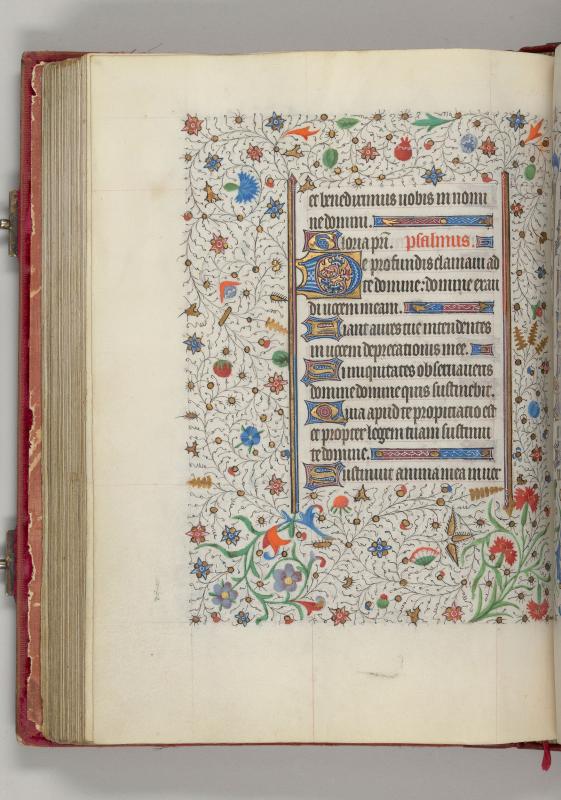 et benediximus uobis in nomi
ne domini.
Gloria pr̃i. psalmus.
De profundis clamaui ad
te domine: domine exau
di uocem meam.
Fiant aures tue intendentes
in uocem deprecationis mee.
Si iniquitates obseruaueris
domine domine quis sustinebit.
Quia apud te propitiatio est
et propter legem tuam sustinui
te domine.
Sustinuit anima mea in uer